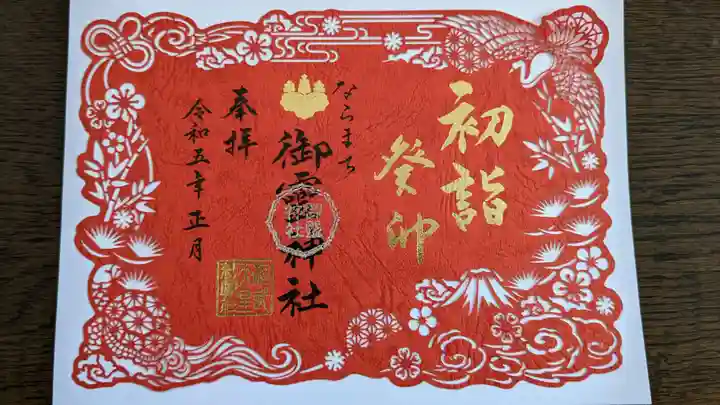 初詣
癸卯
ならまち
御霊神社
奉拝
令和五年 正月